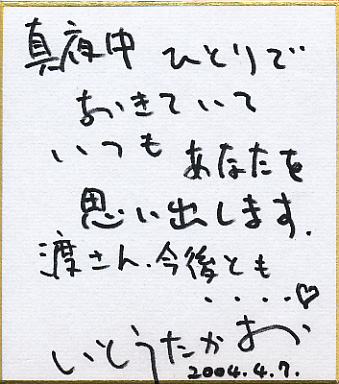 真夜中 ひとりで
おきていて
いつも あなたを
思い出します.
渡さん、今後とも
・・・・♡
いとうたかお
2004.4.7.